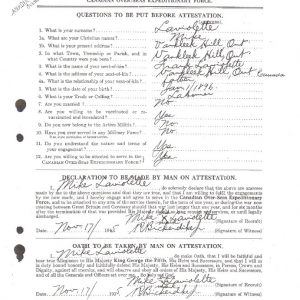 CANADIAN OVER-SEAS EXPEDITIONARY FORCE.
QUESTIONS TO BE PUT BEFORE ATTESTATION.
1. What is your surname?
1a. What are your Christian names?
1b. What is your present address? Vankleek Hill Ont
2. In what Town, Township or Parish, and in
what Country were you born? Vankleek Hill Ont
3. What is the name of your next-of-kin?
4. What is the address of your next-of-kin? Vankleek Hill Ont
4a. What is the relationship of your next-of-kin?
5. What is the date of your birth? 1896
6. What is your Trade or Calling?
7. Are you married? No
8. Are you willing to be vaccinated or re-
vaccinated and inoculated? Yes
9. Do you now belong to the Active Militia? No
10. Have you ever served in any Military Force?
11. Do you understand the nature and terms of
your engagement? Yes
12. Are you willing to be attested to serve in the
CANADIAN OVER-SEAS EXPEDITIONARY FORCE? Yes
DECLARATION TO BE MADE BY MAN ON ATTESTATION.
I, Mike Laviolette, do solemnly declare that the above are answers
made by me to the above questions and that they are true, and that I am willing to fulfil the engagements
by me now made, and I hereby engage and agree to serve in the Canadian Over-Seas Expeditionary
Force, and to be attached to any arm of the service therein, for the term of one year, or during the war now
existing between Great Britain and Germany should that war last longer than one year, and for six months
after the termination of that war provided His Majesty should so long require my services, or until legally
discharged.
Mike Laviolette (Signature of Recruit)
Date Nov 17 1915 (Signature of Witness)
OATH TO BE TAKEN BY MAN ON ATTESTATION.
I, Mike Laviolette, do make Oath, that I will be faithful and
bear true Allegiance to His Majesty King George the Fifth, His Heirs and Successors, and that I will as
in duty bound honestly and faithfully defend His Majesty, His Heirs and Successors, in Person, Crown and
Dignity, against all enemies, and will observe and obey all orders of His Majesty, His Heirs and Successors,
and of all the Generals and Officers set over me. So help me God.
Mike Laviolette (Signature of Recruit)
Date Nov 17 1915 (Signature of Witness)